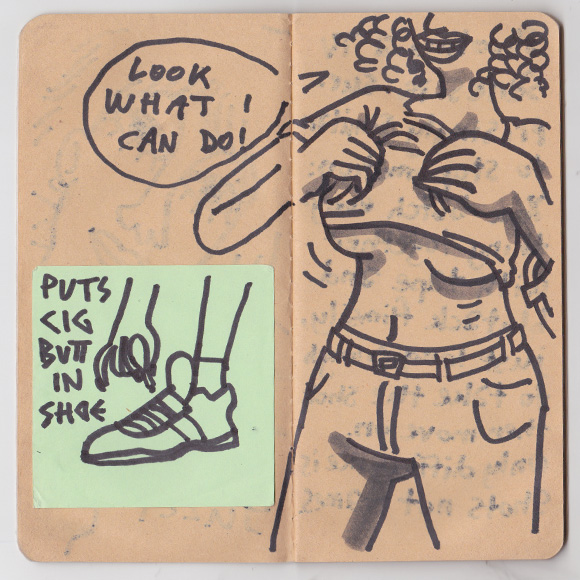 LOOK
WHAT I
CAN DO!
PUTS
CIG
BUTT
IN
SHOE